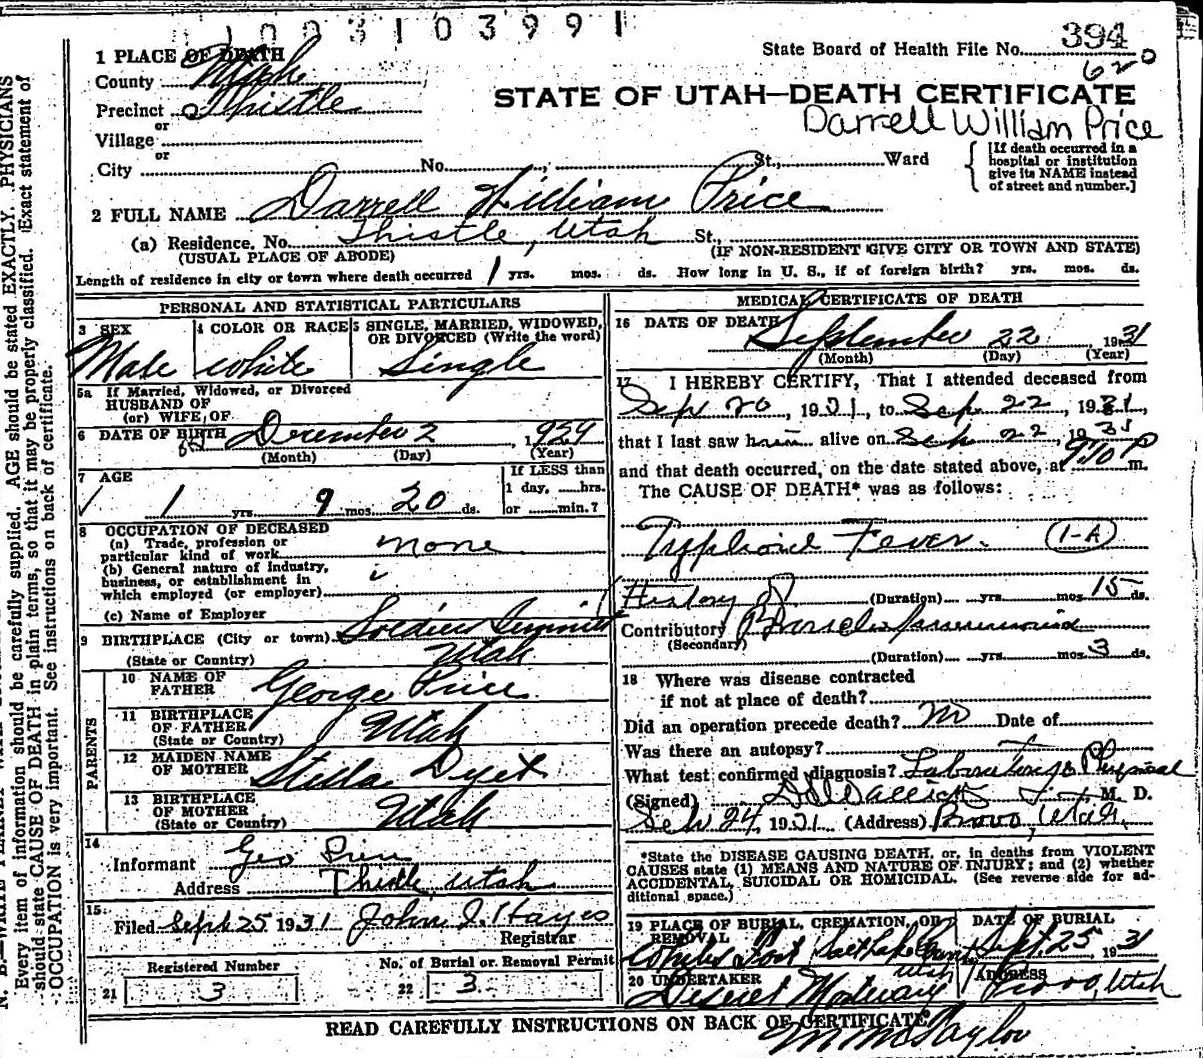 1003103991
State Board of Health File No. 394
620
1 PLACE OF DEATH
County Utah
Precinct Thistle
or
Village
or
City No. St., Ward
STATE OF UTAH—DEATH CERTIFICATE
Darrell William Price
[If death occurred in a
hospital or institution
give its NAME instead
of street and number.]
2 FULL NAME Darrell William Price
(a) Residence, No. Thistle, Utah St.,
(USUAL PLACE OF ABODE) (IF NON-RESIDENT GIVE CITY OR TOWN AND STATE)
Length of residence in city or town where death occurred 1 yrs. mos. ds. How long in U. S., if of foreign birth? yrs. mos. ds.
PERSONAL AND STATISTICAL PARTICULARS
3 SEX 4 COLOR OR RACE 5 SINGLE, MARRIED, WIDOWED,
OR DIVORCED (Write the word)
Male white Single
5a If Married, Widowed, or Divorced
HUSBAND OF
(or) WIFE OF
6 DATE OF BIRTH December 2, 1929
(Month) (Day) (Year)
7 AGE If LESS than
1 day, hrs.
1 yrs. 9 mos. 20 ds. or min.?
8 OCCUPATION OF DECEASED
(a) Trade, profession or
particular kind of work none
(b) General nature of industry,
business, or establishment in
which employed (or employer)
(c) Name of Employer
9 BIRTHPLACE (City or town) Soldier Summit
(State or Country) Utah
PARENTS
10 NAME OF
FATHER George Price
11 BIRTHPLACE
OF FATHER
(State or Country) Utah
12 MAIDEN NAME
OF MOTHER Stella Dyet
13 BIRTHPLACE
OF MOTHER
(State or Country) Utah
14
Informant Geo Price
Address Thistle, Utah
15
Filed Sept 25 1931 John J. Hayes
Registrar
Registered Number No. of Burial or Removal Permit
21 3 22 3
MEDICAL CERTIFICATE OF DEATH
16 DATE OF DEATH September 22, 1931
(Month) (Day) (Year)
17 I HEREBY CERTIFY, That I attended deceased from
Sep 20, 1931, to Sep 22, 1931,
that I last saw him alive on Sep 22, 1931
and that death occurred, on the date stated above, at 9:10 P m.
The CAUSE OF DEATH* was as follows:
Typhoid Fever. (1-A)
History of (Duration) yrs. mos. 15 ds.
Contributory Broncho pneumonia
(Secondary)
(Duration) yrs. mos. 3 ds.
18 Where was disease contracted
if not at place of death?
Did an operation precede death? No Date of
Was there an autopsy?
What test confirmed diagnosis? Laboratory & Physical
(Signed) M. D.
Sep 24, 1931 (Address) Provo, Utah.
*State the DISEASE CAUSING DEATH, or, in deaths from VIOLENT
CAUSES state (1) MEANS AND NATURE OF INJURY; and (2) whether
ACCIDENTAL, SUICIDAL OR HOMICIDAL. (See reverse side for ad-
ditional space.)
19 PLACE OF BURIAL, CREMATION, OR DATE OF BURIAL
REMOVAL
Salt Lake County Utah Sept. 25 1931
20 UNDERTAKER ADDRESS
Deseret Mortuary Provo, Utah
READ CAREFULLY INSTRUCTIONS ON BACK OF CERTIFICATE
Taylor
Every item of information should be carefully supplied. AGE should be stated EXACTLY. PHYSICIANS
should state CAUSE OF DEATH in plain terms, so that it may be properly classified. Exact statement of
OCCUPATION is very important. See instructions on back of certificate.